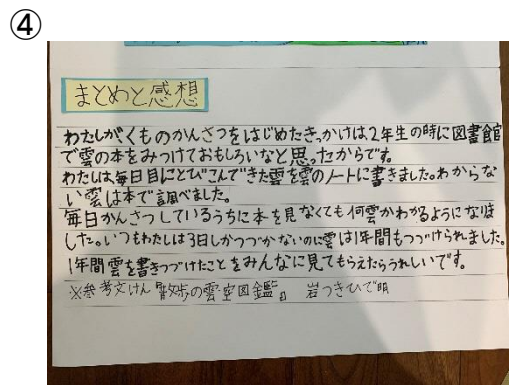 ④
まとめと感想
わたしがくものかんさつをはじめたきっかけは、2年生の時に図書館
で雲の本をみつけておもしろいなと思ったからです。
わたしは、毎日目にとびこんできた雲を雲のノートに書きました。わからな
い雲は本で調べました。
毎日かんさつしているうちに本を見なくても何雲かわかるようになりま
した。いつもわたしは3日しかつづかないのに雲は1年間もつづけられました。
1年間雲を書きつづけたことをみんなに見てもらえたらうれしいです。
※参考文けん 散歩の雲・空図鑑』 岩つきひで明